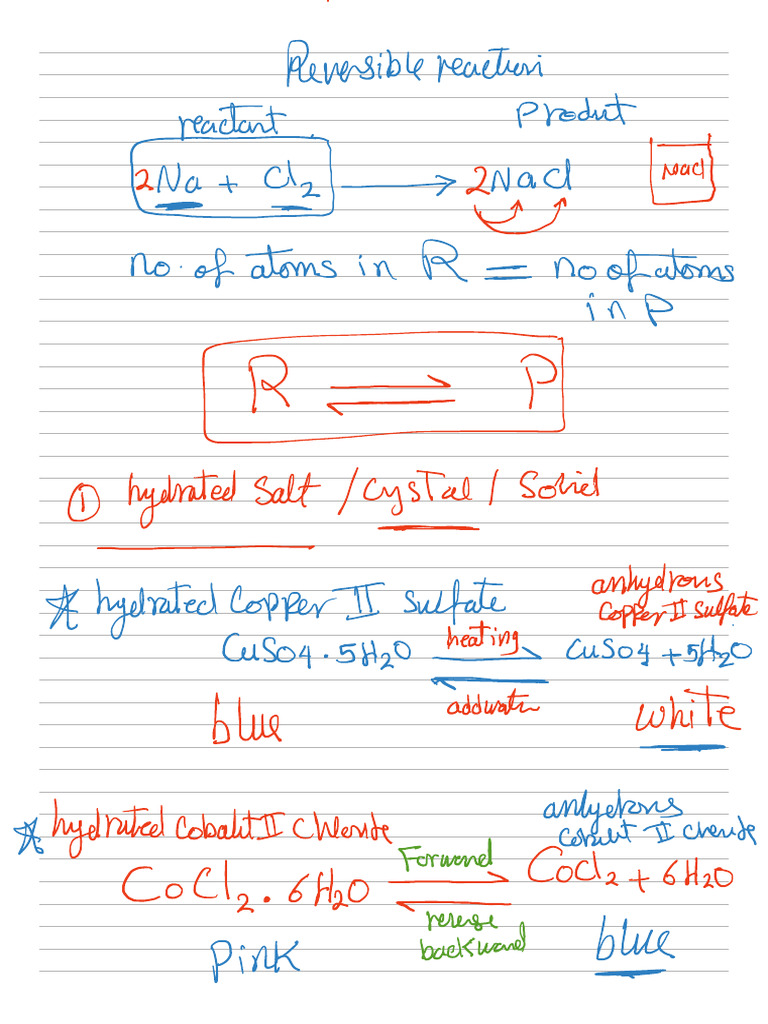 Reversible reaction
reactant Product
2Na + Cl2 → 2NaCl NaCl
no. of atoms in R = no of atoms
in P
R ⇌ P
① hydrated Salt / Cystal / Solid
☆ hydrated Copper II sulfate anhydrous
Copper II sulfate
CuSO4 . 5H2O heating ⇌ add water CuSO4 + 5H2O
blue white
☆ hydrated Cobalt II Chloride anhydrous
Cobalt II Chloride
CoCl2 . 6H2O Forward ⇌ reverse
backward CoCl2 + 6H2O
Pink blue